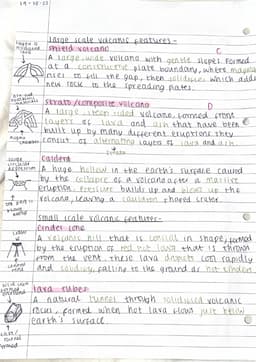 19-10-23
Large scale volcanic features-
Shield volcano C
A large, wide volcano with gentle slopes formed
at a constructive plate boundary, where magma
rises to fill the gap, then solidifies which adds
new rock to the spreading plates.
Strato/composite volcano D
A large steep sided volcano, formed from
layers of lava and ash that have been
built up by many different eruptions they
consist of alternating layers of lava and ash.
Caldera
A huge hollow in the earth's surface caused
by the collapse of a volcano after a massive
eruption. Pressure builds up and blows up the
volcano, leaving a cauldron shaped crater.
Small scale volcanic features-
Cinder cone
A volcanic hill that is conical in shape, formed
by the eruption of red hot lava that is thrown
from the vent. these lava droplets cool rapidly
and solidify, falling to the ground as hot cinders
lava tubes
A natural tunnel through solidified volcanic
rocks, formed when hot lava flows just below
earth's surface.